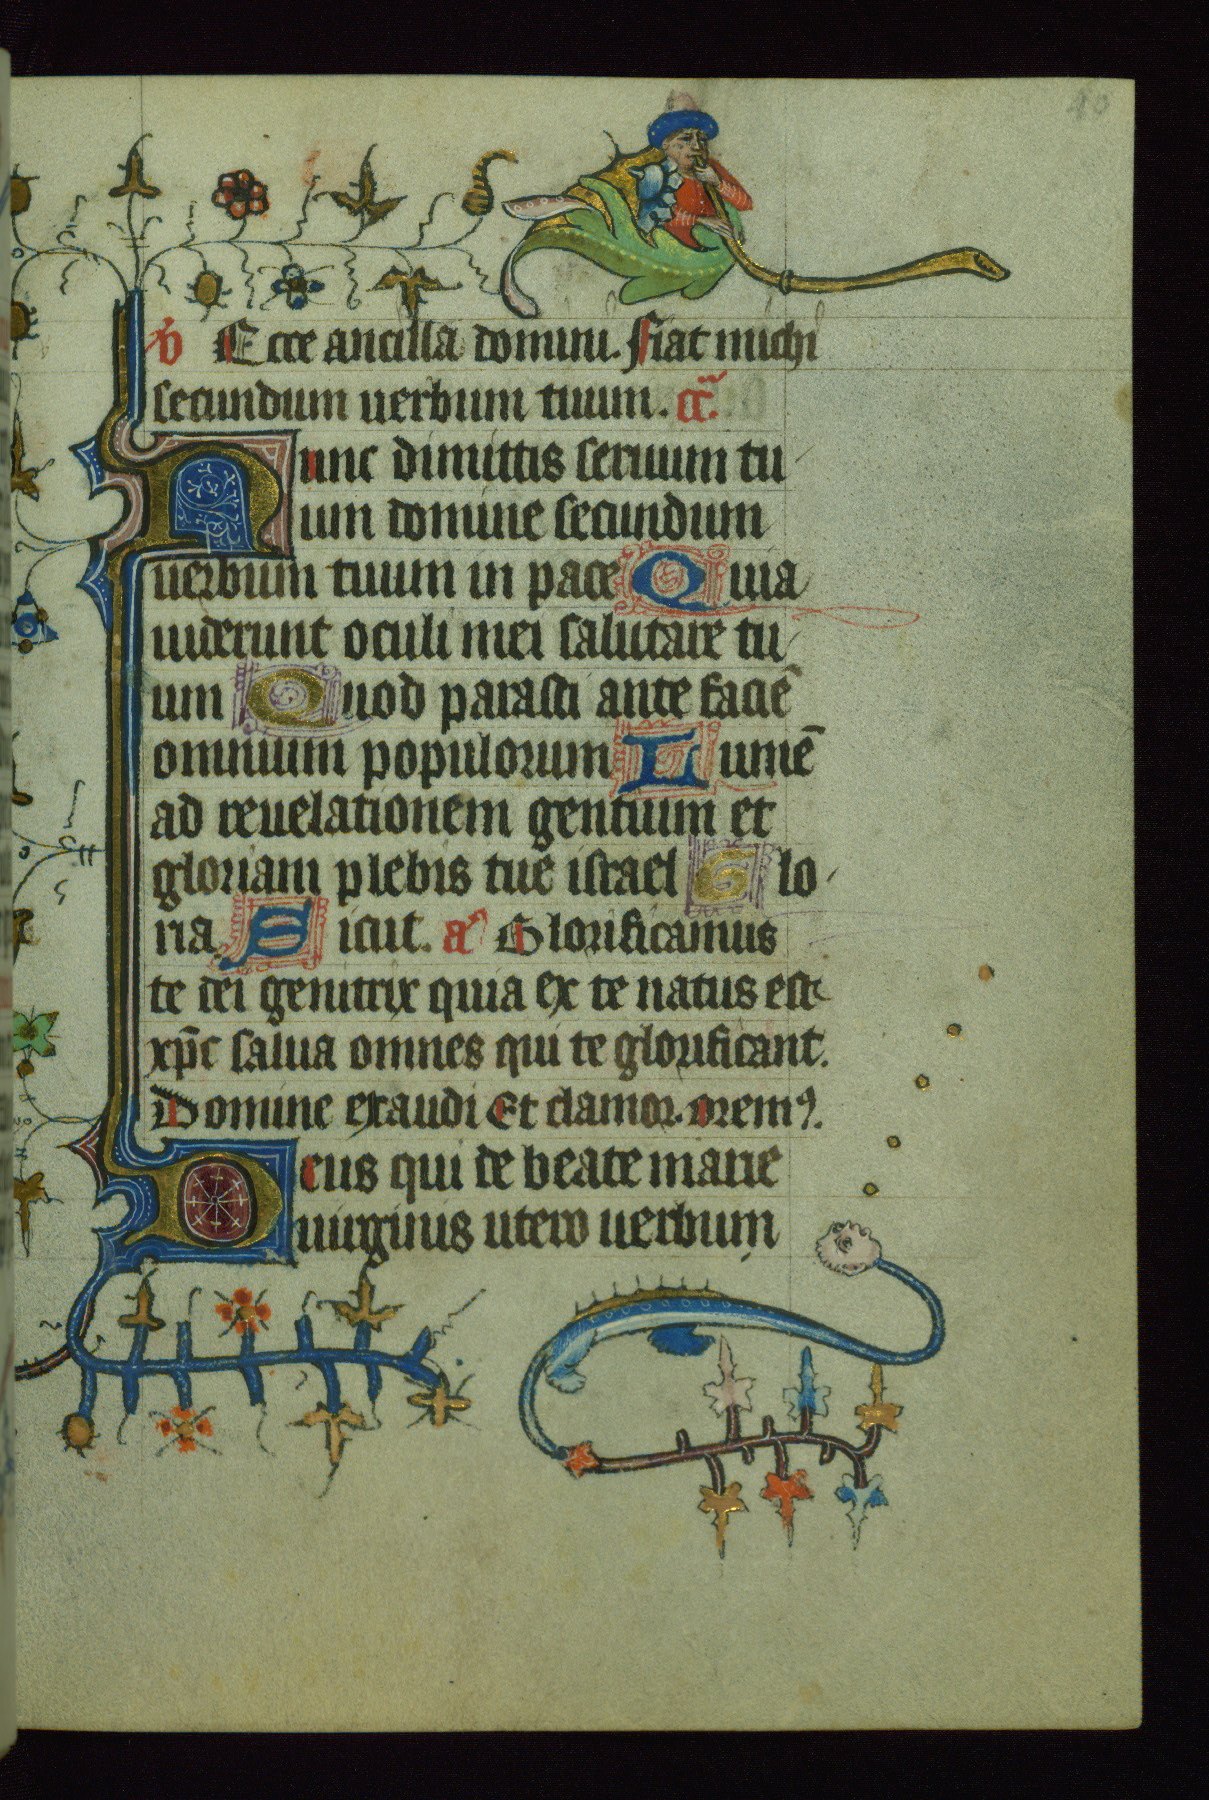 40
v̉ Ecce ancilla domini. fiat michi
secundum uerbum tuum. cc̃.
Nunc dimittis seruum tu
um domine secundum
uerbum tuum in pace Quia
uiderunt oculi mei salutare tu
um Quod parasti ante faciē
omnium populorum Lumē
ad reuelationem gentium et
gloriam plebis tue israel Glo
ria Sicut. an̄ Glorificamus
te dei genitrix quia ex te natus est
xp̄c salua omnes qui te glorificant.
Domine exaudi Et clamor. oremꝰ.
Deus qui de beate marie
uirginis utero uerbum